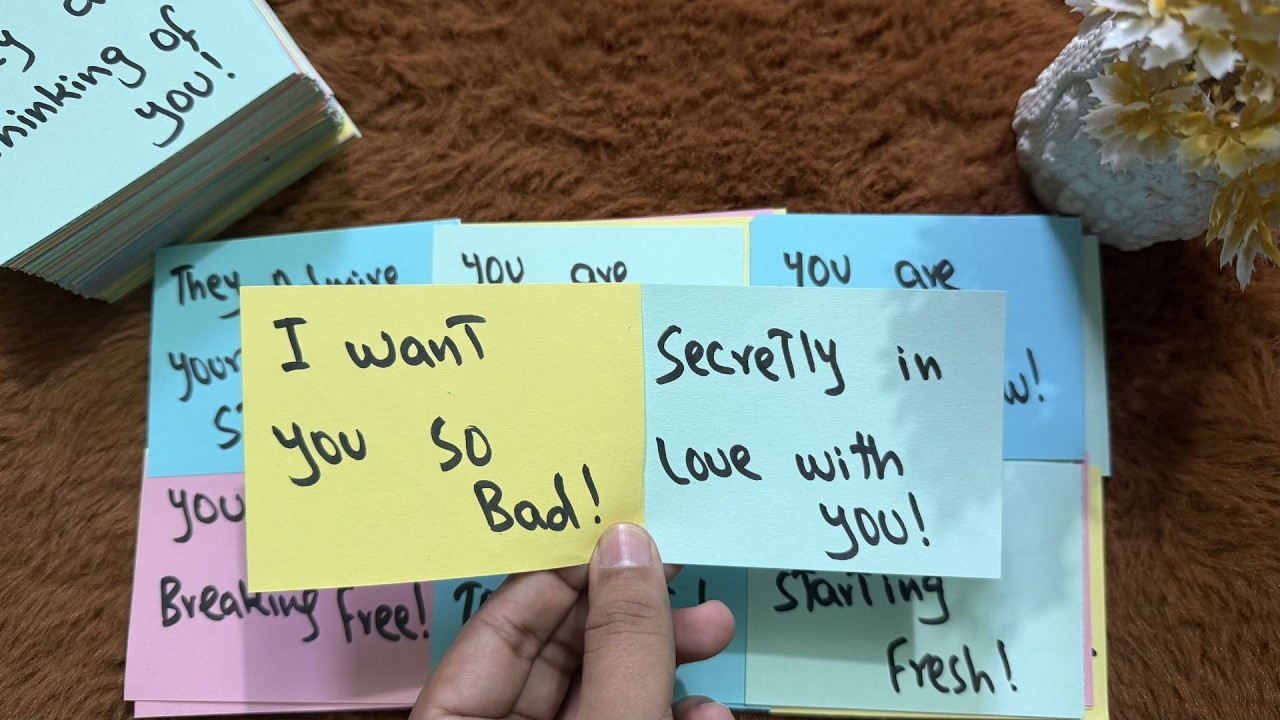 thinking of
you!
They Admire
your
you are
you are
I want
you so
Bad!
Secretly in
love with
you!
you
Breaking free!
Starting
Fresh!